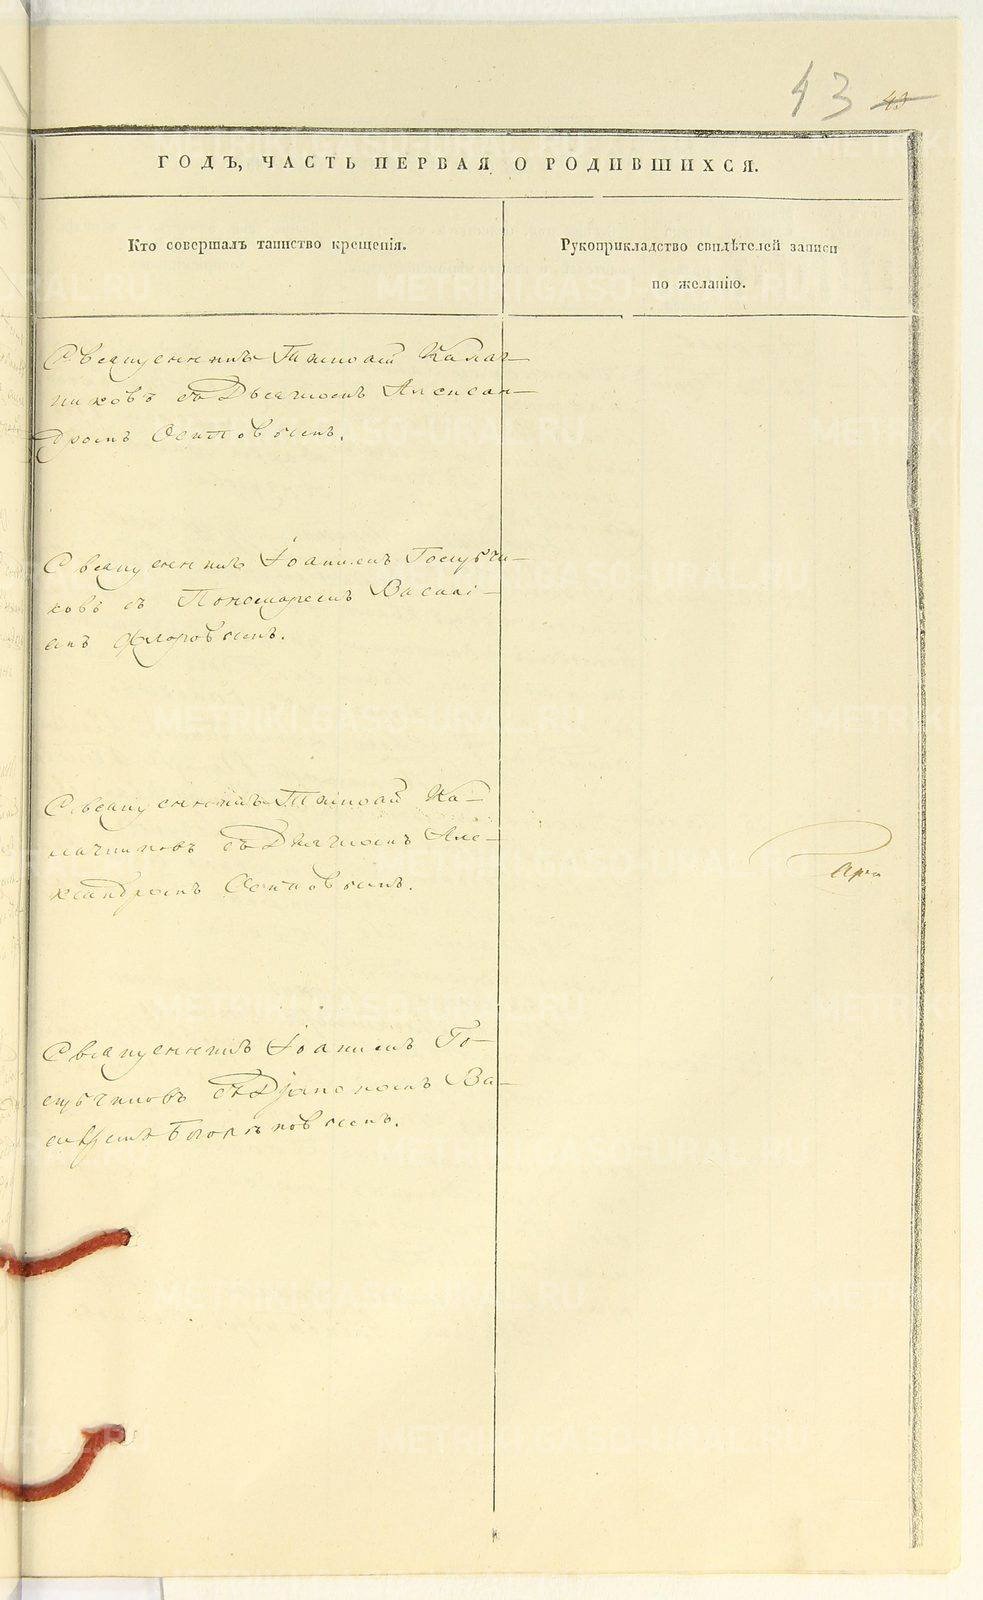 43 43
ГОДЪ, ЧАСТЬ ПЕРВАЯ О РОДИВШИХСЯ.
Кто совершалъ таинство крещенія.
Рукоприкладство свидѣтелей записи
по желанію.
Священникъ Тимоѳей Калач-
никовъ съ Дьячкомъ Алексан-
дромъ Осиповымъ.
Священникъ Іоаннъ
ковъ съ Пономаремъ Василі-
емъ Флоровымъ.
Священникъ Тимоѳей Ка-
лачниковъ съ Дьячкомъ Але-
ксандромъ Осиповымъ.
Священникъ Іоаннъ
съ Діакономъ Ва-
METRIKI.GASO-URAL.RU